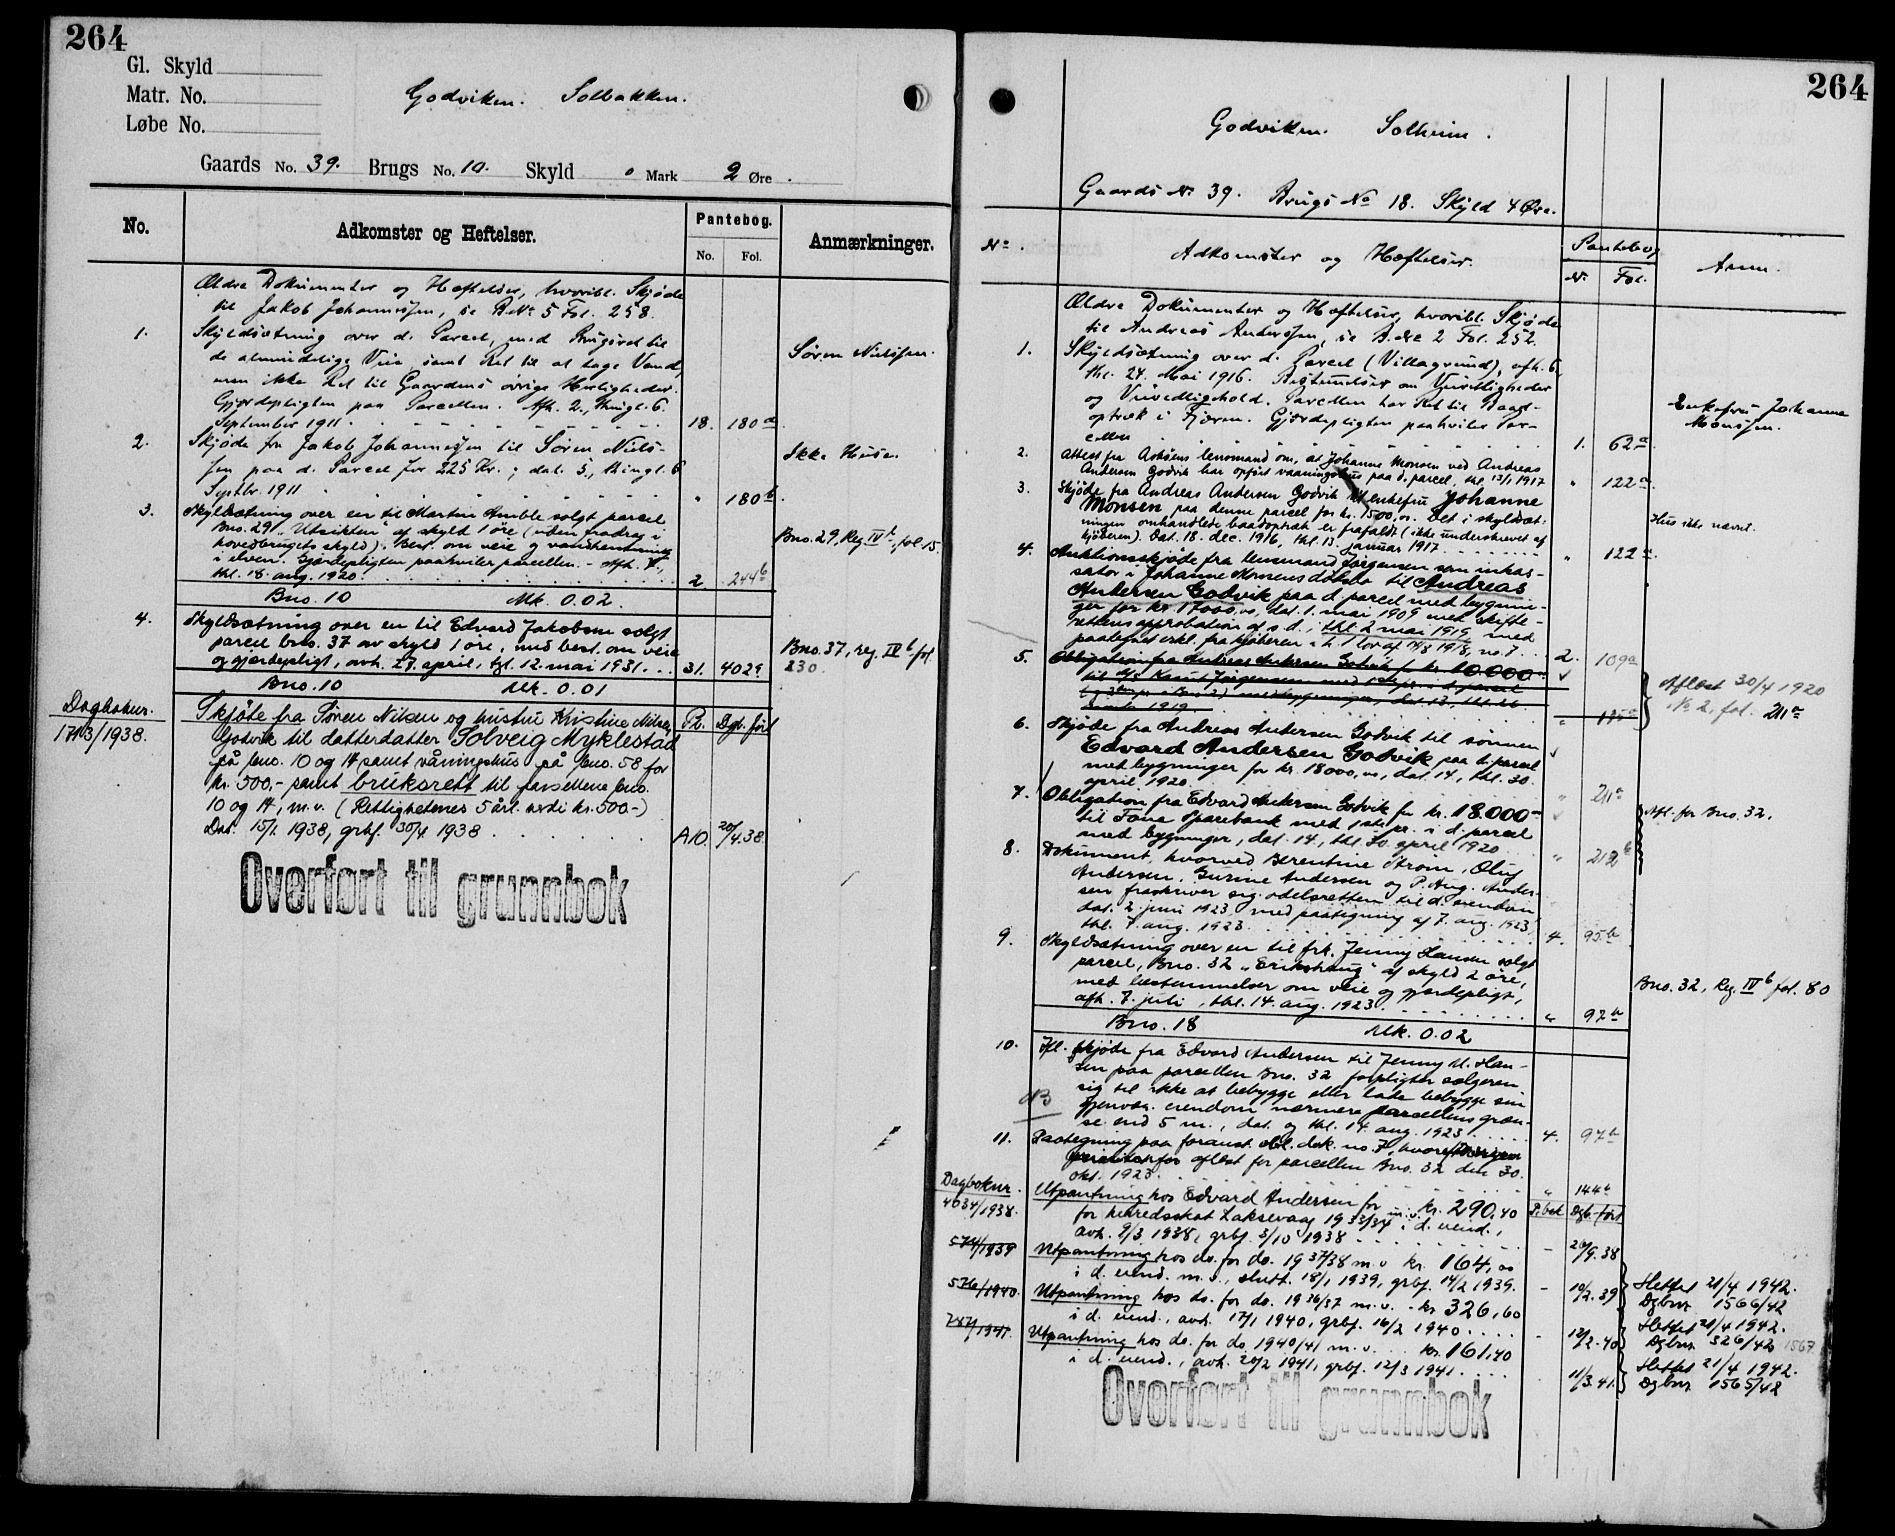 264
Gl. Skyld
Matr. No.
Løbe No.
Godviken. Solbakken.
Gaards No. 39. Brugs No. 10. Skyld 0 Mark 2 Øre.
No.
Adkomster og Heftelser.
Pantebog.
No. Fol.
Anmærkninger.
Ældre Dokumenter og Heftelser, hvoribl. Skjøde
til Jakob Johannessen, se B. No 5 Fol. 258.
1. Skyldsætning over d. Parcel, med Brugsret til
de almindelige Veie samt Ret til at tage Vand,
men ikke Ret til Gaardens øvrige Herligheder.
Gjerdepligten paa Parcellen. Afh. 2., thingl. 6.
September 1911 18. 180a
Søren Nielssen.
2. Skjøde fra Jakob Johannessen til Søren Niels-
sen paa d. Parcel for 225 Kr.; dat. 5., thingl. 6
Septbr. 1911 " 180b
Ikke Huse.
3. Skyldsætning over en til Martin Amble solgt parcel
Bno. 29 "Utsikten" af skyld 1 øre (uden fradrag i
hovedbrugets skyld). Best. om veie og vandhentning
i elven. Gjerdepligten paahviler parcellen. - Afh. 7.,
thl. 18. aug. 1920. 2. 244b
Bno. 29, Reg. IVb, fol. 15.
Bno. 10 Mk. 0.02.
4. Skyldsætning over en til Edvard Jakobsen solgt
parcel bno. 37 av skyld 1 øre, med best. om veie
og gjerdepligt, avh. 27. april, tgl. 12. mai 1931. 31. 402a
Bno. 37, reg. IVb fol.
230.
Bno. 10 Mk. 0.01
Dagboknr.
1713/1938.
Skjøte fra Søren Nilsen og hustru Kristine Nilsen,
Godvik til datterdatter Solveig Myklestad
på bno. 10 og 14 samt våningshus på bno. 58 for
kr. 500,- samt bruksrett til parsellene bno.
10 og 14, m.v. (Rettighetenes 5 årl. verdi kr. 500.-)
Dat. 15/1 1938, grbf. 30/4 1938 A10. 20/4.38
Pb. Dgb. ført
Overført til grunnbok
264
Godviken. Solheim.
Gaards No 39. Brugs No 18. Skyld 4 Øre.
No.
Adkomster og Hæftelser.
Pantebog
No. Fol.
Anm.
Ældre Dokumenter og Hæftelser, hvoribl. Skjøde
til Andreas Anderssen, se B. No 2 Fol. 252.
1. Skyldsætning over d. Parcel (Villagrund), afh. 6.,
thl. 24. Mai 1916. Bestemmelser om Veirettigheder
og Veivedligehold. Parcellen har Ret til Baad-
optræk i Fjæren. Gjerdepligten paahviler Par-
cellen 1. 62a
Enkefru Johanne
Monssen.
2. Attest fra Askøens lensmand om, at Johanne Monsen ved Andreas
Andersen Godvik har opført vaaningshus paa d. parcel, thl. 13/1 1917 " 122a
3. Skjøde fra Andreas Andersen Godvik til enkefru Johanne
Monsen paa denne parcel for kr. 1500,00. Det i skyldsæt-
ningen omhandlede baadoptræk er frafaldt (ikke underskrevet af
kjøberen). Dat. 18. dec. 1916, thl. 13. januar 1917 " 122a
Hus ikke nævnt.
4. Auktionsskjøde fra lensmand Jørgensen som inkas-
sator i Johanne Monsens dødsbo til Andreas
Andersen Godvik paa d. parcel med bygnin-
ger for kr. 17000,00, dat. 1. mai 1909 med skifte-
rettens approbation af s.d., thl. 2 mai 1919, med
paategnet erkl. fra kjøberen i h. t. lov af 14/8 1918, no. 7. 2. 109a
5. Obligation fra Andreas Andersen Godvik for kr. 10000
til Knut Jørgensen med 1ste pr. i d. parcel
" 115a
Aflæst 30/4 1920
No. 2, fol. 211a
6. Skjøde fra Andreas Andersen Godvik til sønnen
Edvard Andersen Godvik paa d. parcel
med bygninger for kr. 18000,00, dat. 14., thl. 30.
april 1920. " 211a
7. Obligation fra Edvard Andersen Godvik for kr. 18.000
til Fana Sparebank med 1ste pr. i d. parcel
med bygninger, dat. 14., thl. 30. april 1920 " 212b
Afl. for Bno. 32.
8. Dokument, hvorved Berentine Strøm, Oluf
Andersen, Gurine Andersen og P. Aug. Ander-
sen fraskriver sig odelsretten til d. eiendom
dat. 2. juni 1923 med paategning af 7. aug. 1923,
thl. 7. aug. 1923. 4. 95b
9. Skyldsætning over en til frk. Jenny Hansen solgt
parcel, Bno. 32 "Erikshaug" af skyld 2 øre,
med bestemmelser om veie og gjerdepligt,
afh. 7. juli, thl. 14. aug. 1923. " 97a
Bno. 32, Reg. IVb fol. 80
Bno. 18 Mk. 0.02
10. Ifl. skjøde fra Edvard Andersen til Jenny M. Han-
sen paa parcellen Bno. 32 forpligter sælgeren
sig til ikke at bebygge eller late bebygge sin
gjenvær. eiendom nærmere parcellens græn-
se end 5 m., dat. og thl. 14. aug. 1923. 4. 97b
NB
11. Paategning paa foranst. obl. dok. no. 7, hvorefter
aflæst for parcellen Bno. 32 den 30.
okt. 1923. " 144b
Dagboknr. P.bok Dgb. ført
4034/1938. Utpantning hos Edvard Andersen for m.v. kr. 290,40
for herredsskat Laksevaag 1933/34 i d. eiend.,
avh. 9/3 1938, grbf. 3/10 1938 - 20/9.38
574/1939 Utpantning hos do. for do. 1937/38 m.v. kr. 164,00
i d. eiend. m.v., slutt. 18/1 1939, grbf. 14/2 1939. - 10/2.39
Slettet 21/4 1942.
Dgbnr. 1566/42
576/1940. Utpantning hos do. for do. 1936/37 m.v. - kr. 326,60
i d. eiend., avh. 17/1 1940, grbf. 16/2 1940 - 12/2.40
Slettet 21/4 1942.
Dgbnr. 326/42 1567
787/1941. Utpantning hos do. for do 1940/41 m.v. kr. 161,40
i d. eiend., avh. 20/2 1941, grbf. 12/3 1941. 11/3.41.
Slettet 21/4 1942.
Dgbnr. 1565/42
Overført til grunnbok